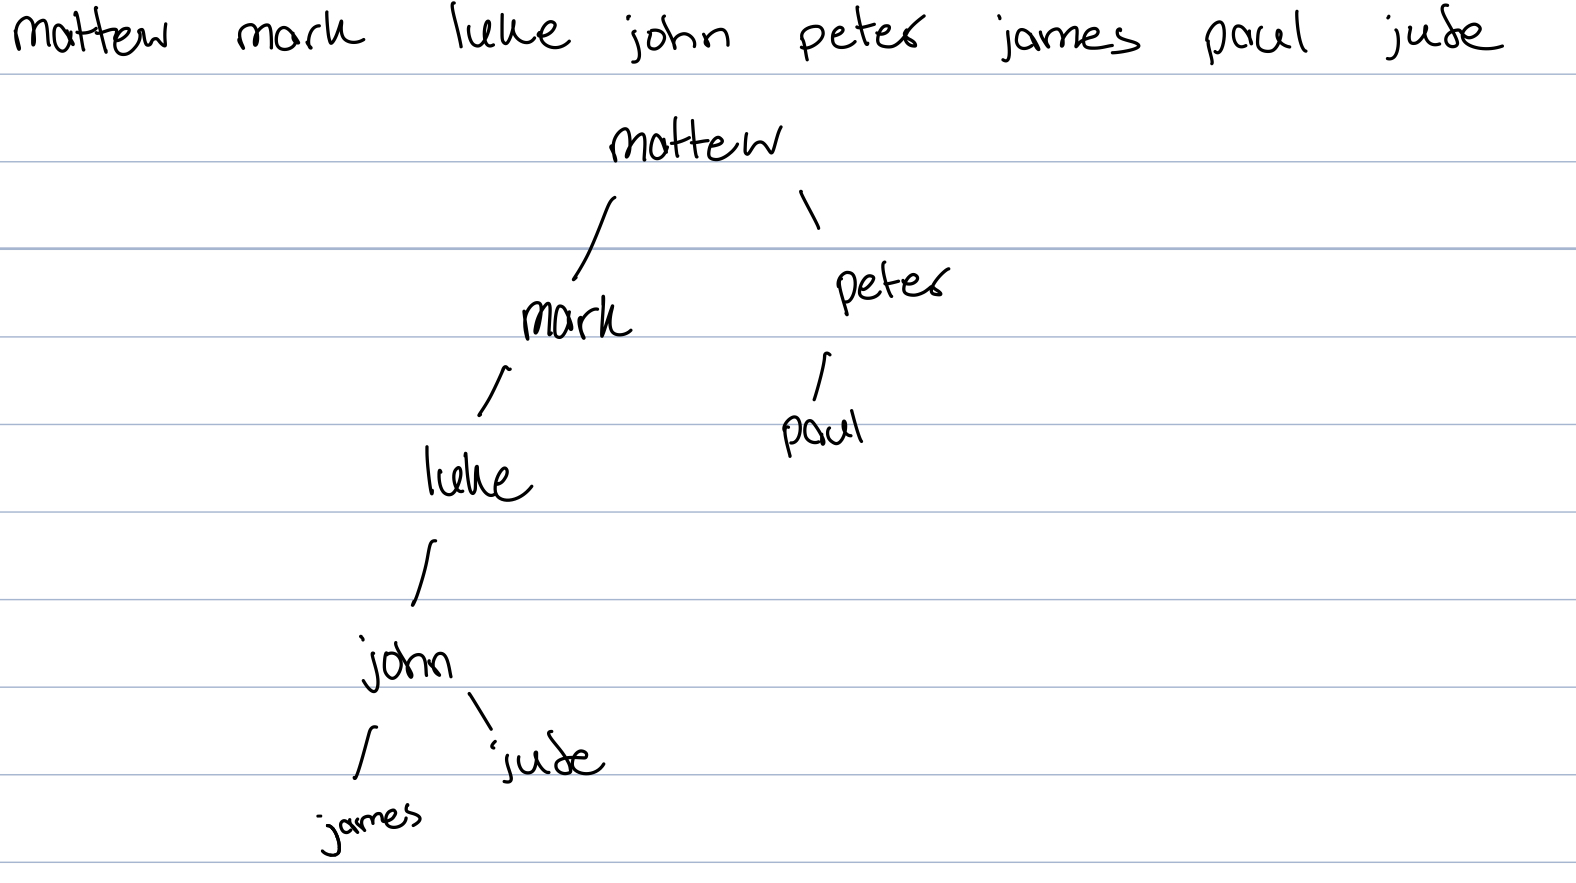 mattew mark luke john peter james paul jude
mattew
peter
mark
paul
luke
john
jude
james